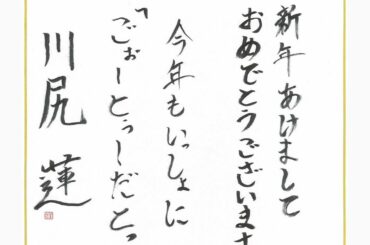 新年あけまして
おめでとうございます
今年もいっしょに
「ごぉーとぅーだとっ
川尻 蓮